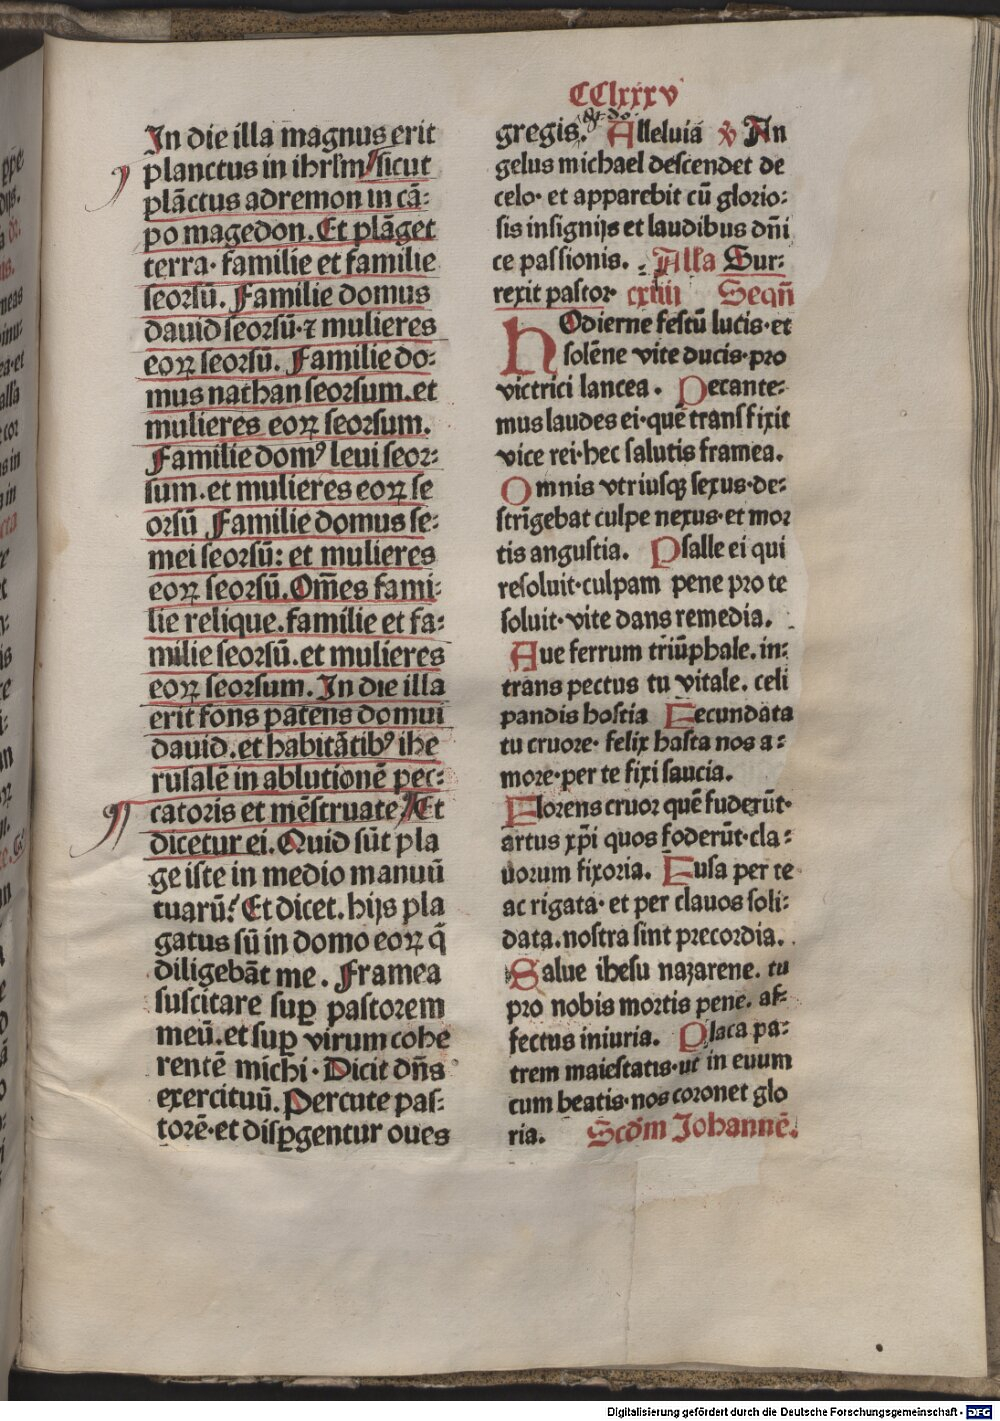 CClxxxv
In die illa magnus erit
planctus in ihrl'm sicut
plāctus adremon in cā:
po magedon. Et plāget
terra· familie et familie
seorsū. Familie domus
dauid seorsū·⁊ mulieres
eoꝝ seorsū. Familie do:
mus nathan seorsum. et
mulieres eoꝝ seorsum.
Familie domꝰ leui seor:
sum. et mulieres eoꝝ se
orsū Familie domus se:
mei seorsū: et mulieres
eoꝝ seorsū. Om̄es fami:
lie relique. familie et fa:
milie seorsū. et mulieres
eoꝝ seorsum. In die illa
erit fons patens domui
dauid. et habitātibꝰ ihe
rusalē in ablutionē pec:
catoris et mēstruate. Et
dicetur ei. Quid sūt pla
ge iste in medio manuū
tuarū? Et dicet. hijs pla
gatus sū in domo eoꝝ q̄
diligebāt me. Framea
suscitare suꝑ pastorem
meū. et suꝑ virum cohe
rentē michi· Dicit dn̄s
exercituū. Percute pas:
torē·et disꝑgentur oues
gregis. Alleluiā ℣ An
gelus michael descendet de
celo· et apparebit cū glorio:
sis insignijs et laudibus dn̄i
ce passionis. Alla Sur:
rexit pastor cxiiii Seqn̄
HOdierne festū lucis·et
solēne vite ducis·pro
victrici lancea. Decante:
mus laudes ei·quē transfixit
vice rei·hec salutis framea.
Omnis vtriusqꝫ sexus·de:
strīgebat culpe nexus·et mor
tis angustia. Psalle ei qui
resoluit·culpam pene pro te
soluit·vite dans remedia.
Aue ferrum triūphale. in:
trans pectus tu vitale. celi
pandis hostia Fecundata
tu cruore· felix hasta nos a:
more·per te fixi saucia.
Florens cruor quē fuderūt·
artus xp̄i quos foderūt·cla:
uorum fixoria. Fusa per te
ac rigata· et per clauos soli:
data. nostra sint precordia.
Salue ihesu nazarene. tu
pro nobis mortis pene. af:
fectus iniuria. Placa pa:
trem maiestatis·ut in euum
cum beatis·nos coronet glo
ria. Scd̄m Johannē.
Digitalisierung gefördert durch die Deutsche Forschungsgemeinschaft - DFG